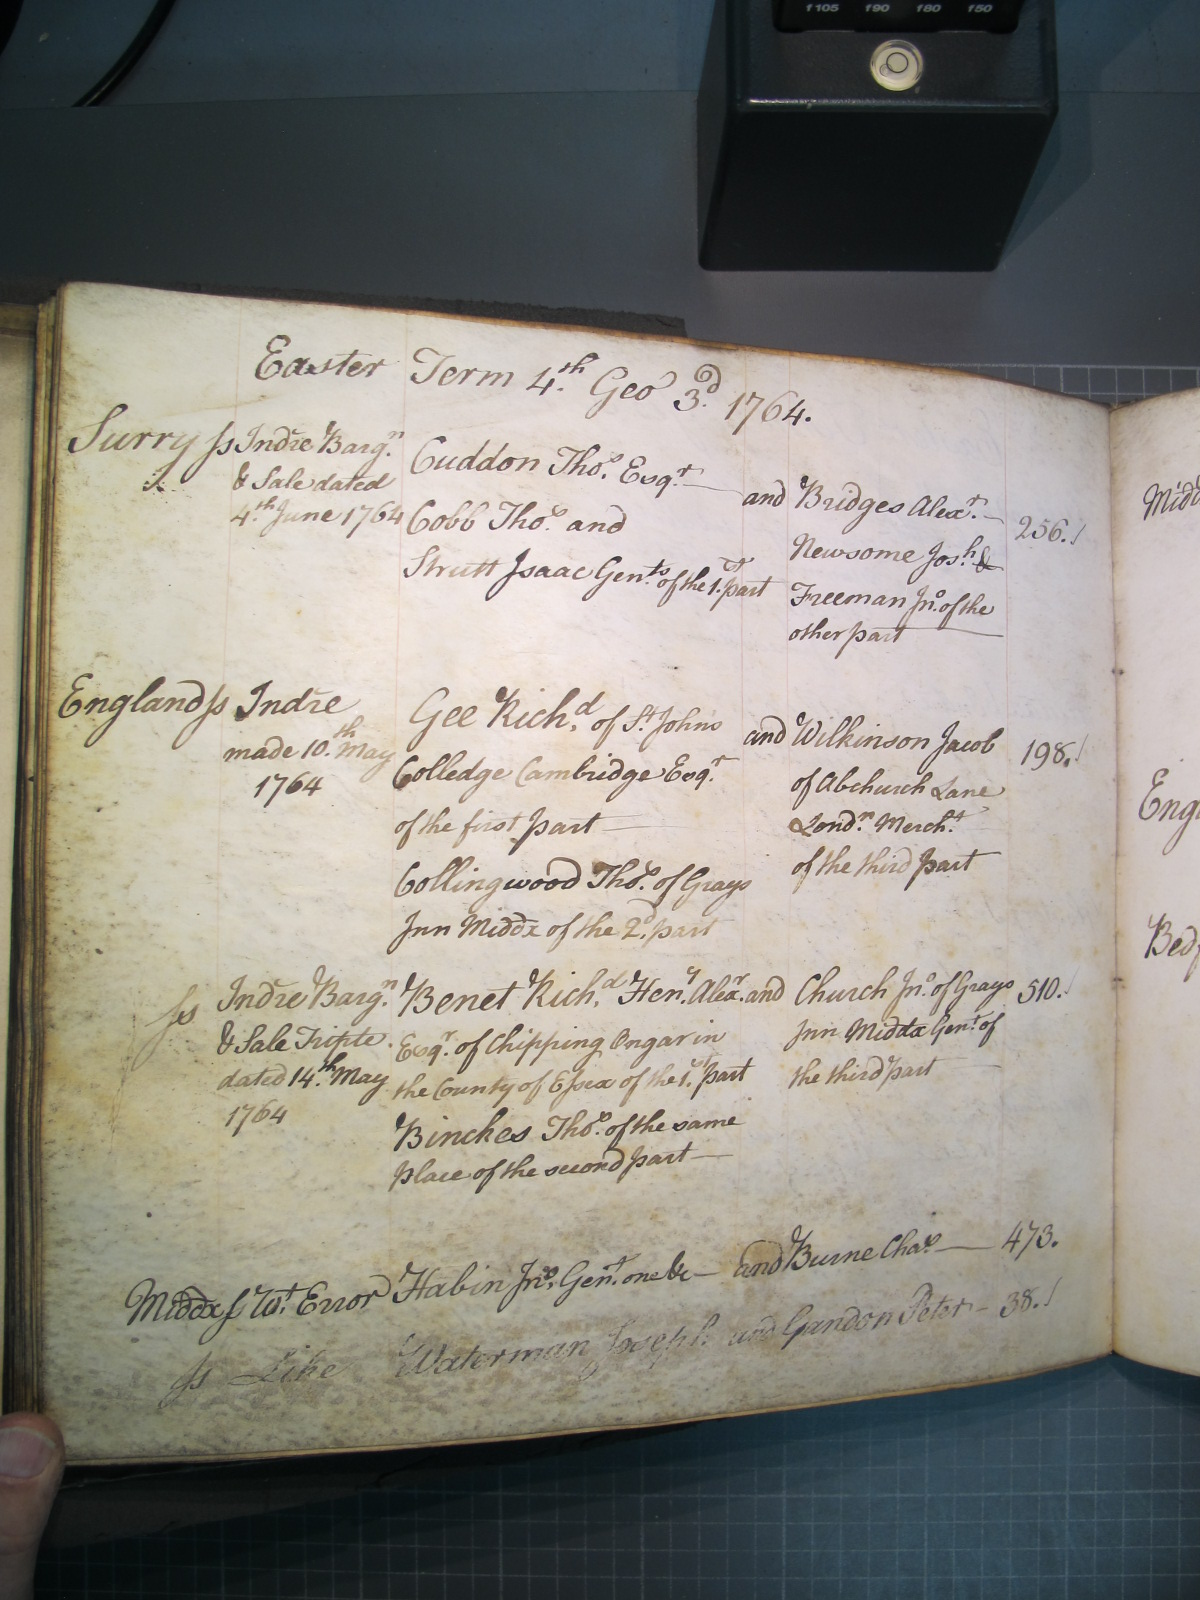 f105 f90 f80 f50
Easter Term 4.th Geo 3.d 1764.
Surry ss Indre Barg.n
& Sale dated
4.th June 1764
Cuddon Tho.s Esq.r
Cobb Tho.s and
Strutt Isaac Gen.ts of the 1.st part
and Bridges Alex.r
Newsome Jos.h &
Freeman Jn.o of the
other part
256.
England ss Indre
made 10.th May
1764
Gee Rich.d of S.t Johns
Colledge Cambridge Esq.r
of the first part
Collingwood Tho.s of Grays
Inn Middx of the 2.d part
and Wilkinson Jacob
of Abchurch Lane
Lond.n Merch.t
of the third part
198.
ss Indre Barg.n
& Sale Tripte
dated 14.th May
1764
Benet Rich.d Hen.y Alex.r
Esq.r of Chipping Ongar in
the County of Essex of the 1.st part
Binckes Tho.s of the same
place of the second part
and Church Jn.o of Grays
Inn Middx Gen.t of
the third part
510.
Middx ss W.t Error Habin Jn.o Gen.t one &c and Burne Cha.s 473.
ss Like Waterman Joseph and Gandon Peter 38.
Midd
Engl
Bedf